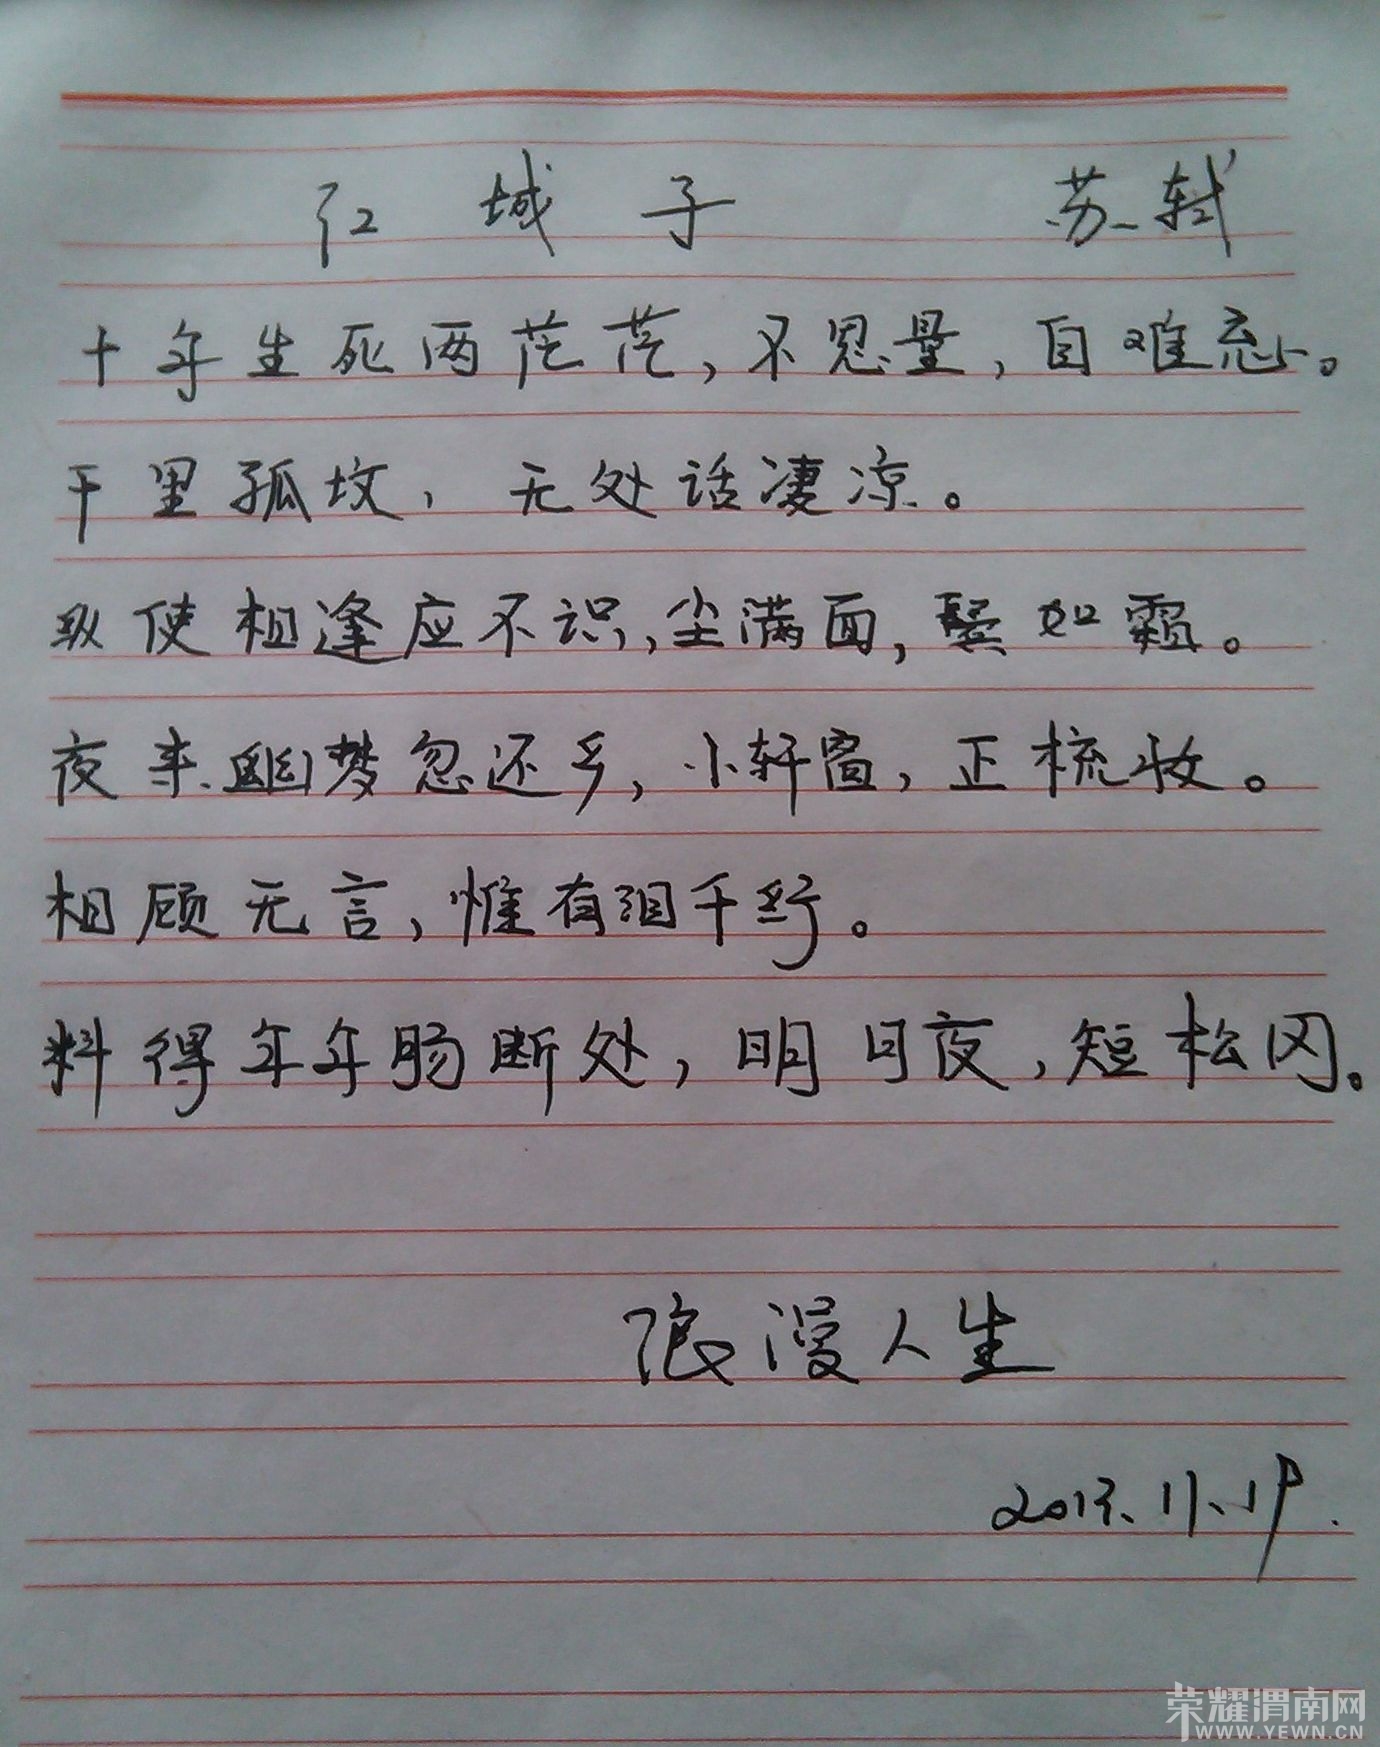 江城子 苏轼
十年生死两茫茫，不思量，自难忘。
千里孤坟，无处话凄凉。
纵使相逢应不识，尘满面，鬓如霜。
夜来幽梦忽还乡，小轩窗，正梳妆。
相顾无言，惟有泪千行。
料得年年肠断处，明月夜，短松冈。
浪漫人生
2013.11.19.
荣耀渭南网
WWW.YEWN.CN